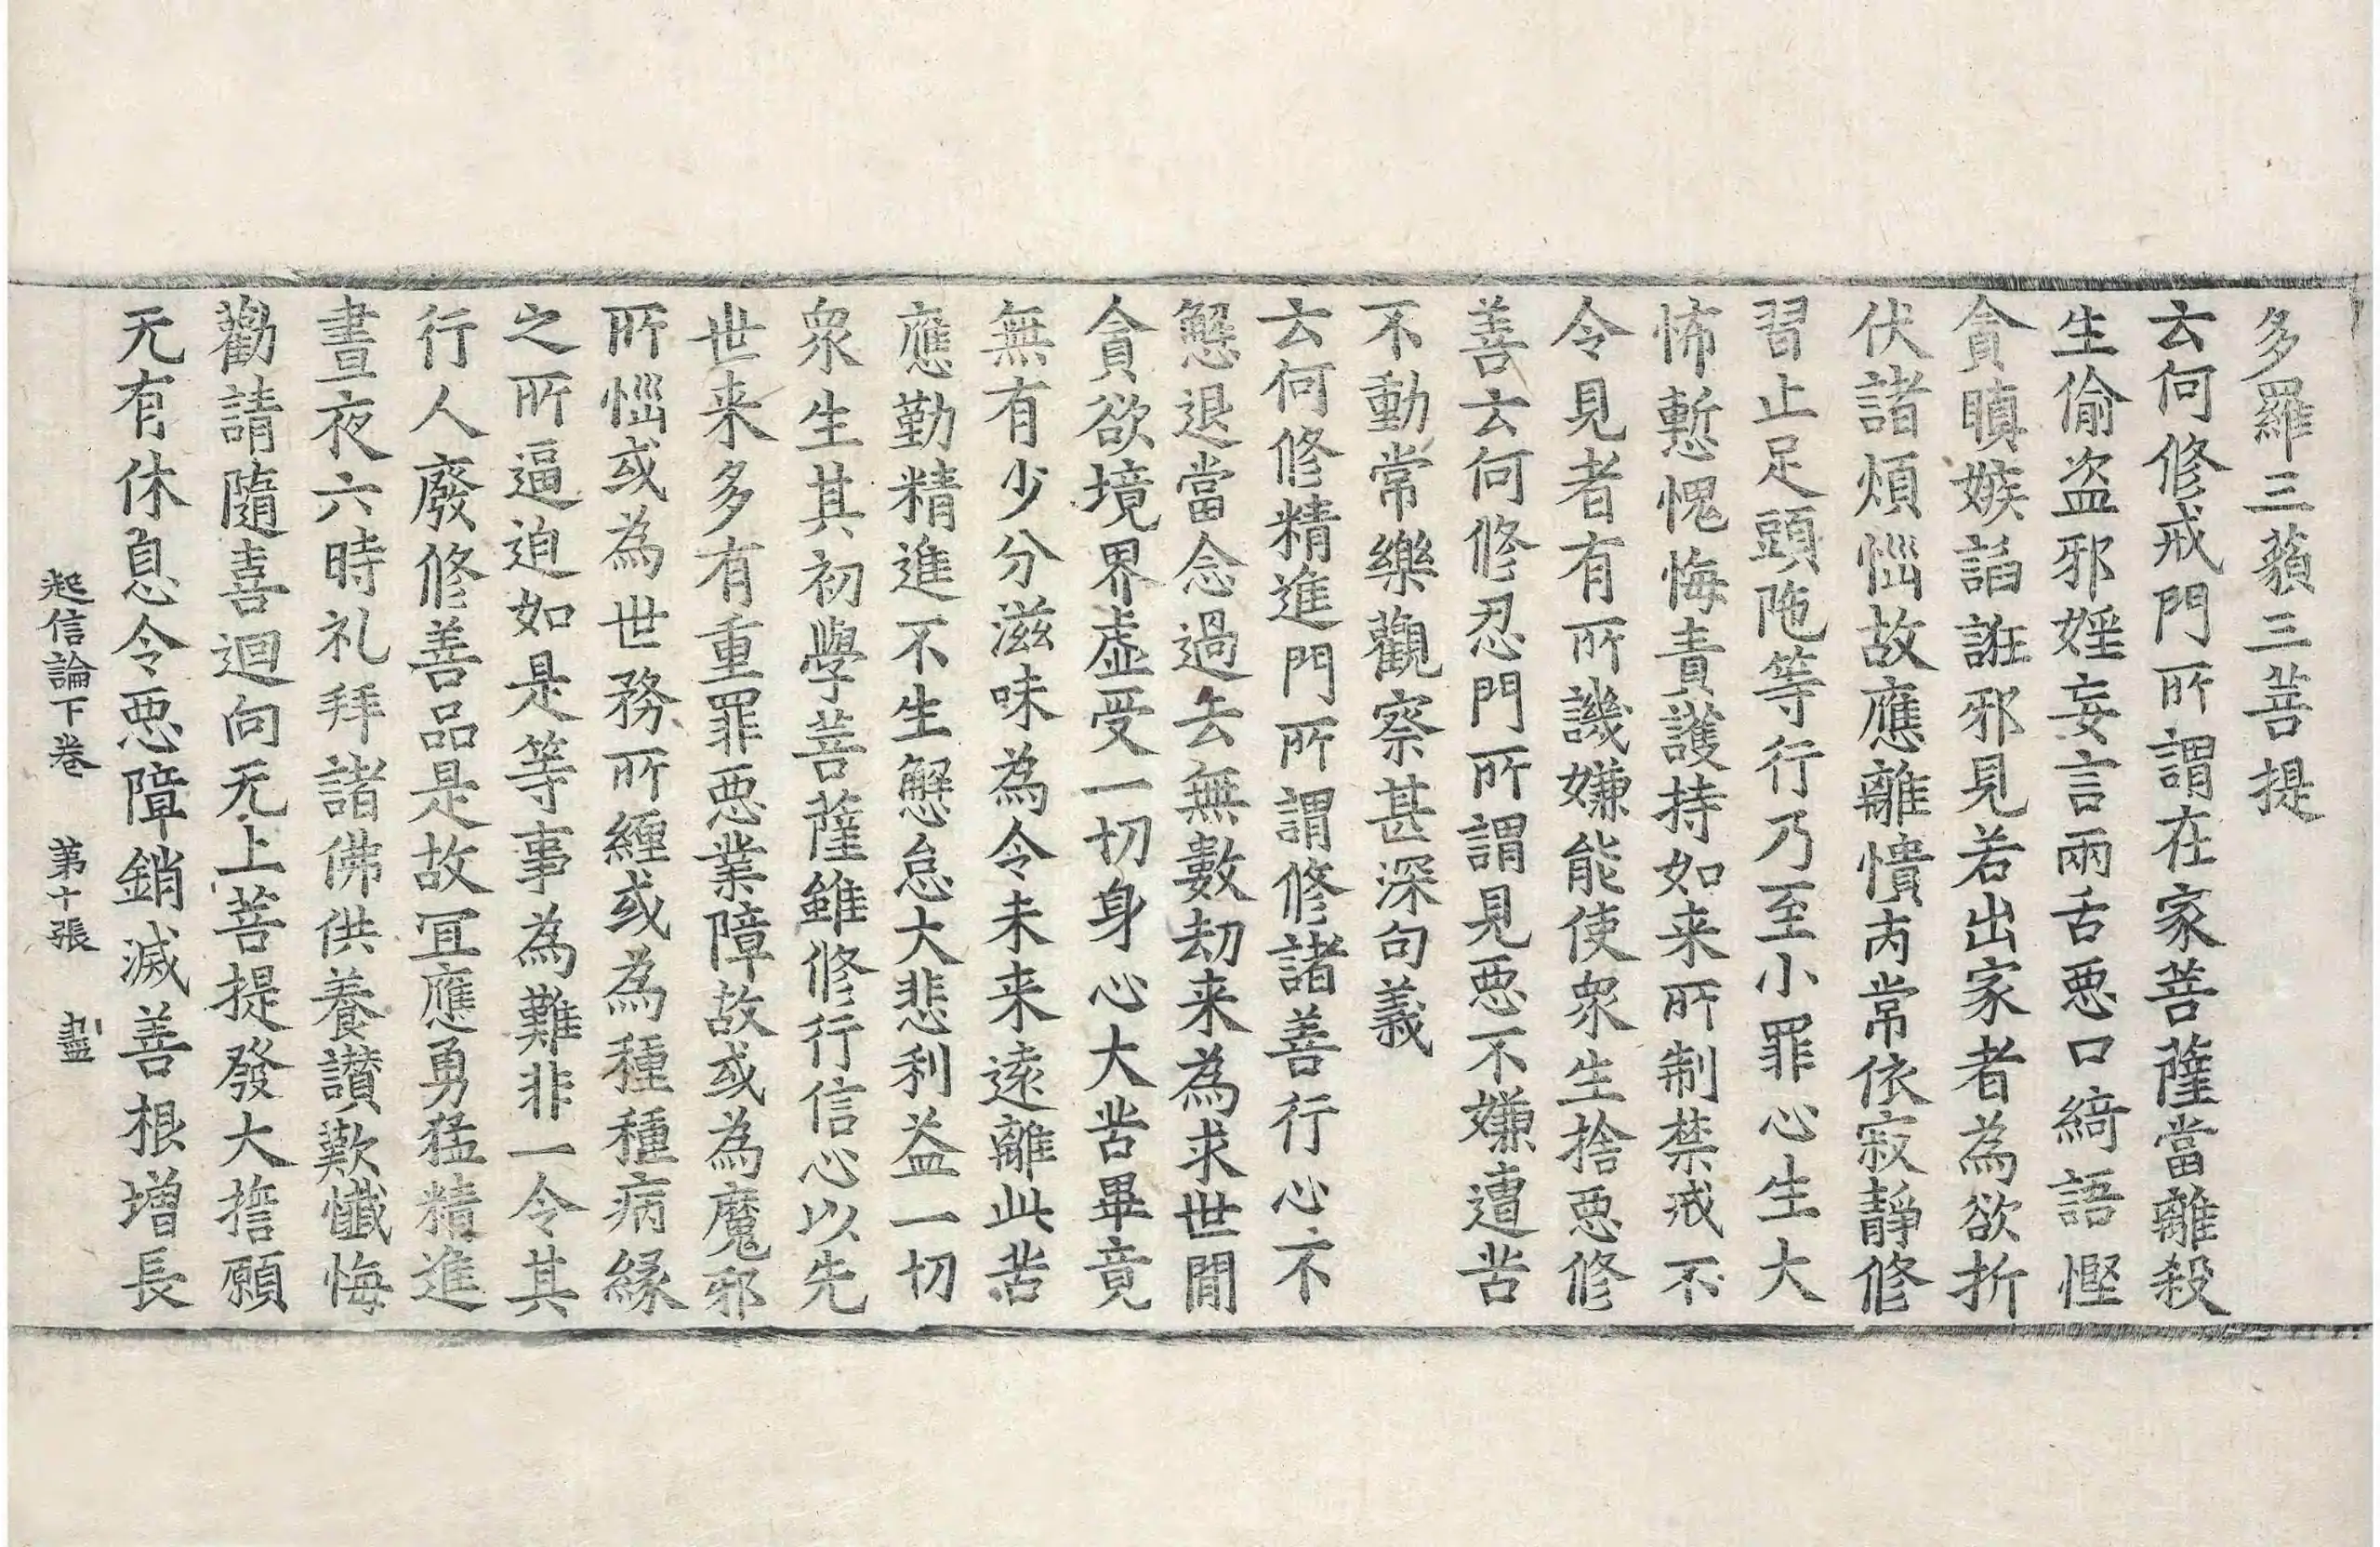 多羅三藐三菩提
云何修戒門所謂在家菩薩當離殺
生偷盗邪婬妄言兩舌惡口綺語慳
貪瞋嫉諂誑邪見若出家者為欲折
伏諸煩惱故應離憒丙常依寂静修
習止足頭陁等行乃至小罪心生大
怖慙愧悔責護持如来所制禁戒不
令見者有所譏嫌能使衆生捨惡修
善云何修忍門所謂見惡不嫌遭苦
不動常樂觀察甚深句義
云何修精進門所謂修諸善行心不
懈退當念過去無數劫来為求世閒
貪欲境界虚受一切身心大苦畢竟
無有少分滋味為令未来遠離此苦
應勤精進不生懈怠大悲利益一切
衆生其初學菩薩雖修行信心以先
世来多有重罪惡業障故或為魔邪
所惱或為世務所纏或為種種病緣
之所逼迫如是等事為難非一令其
行人廢修善品是故冝應勇猛精進
晝夜六時礼拜諸佛供養讃歎懺悔
勸請隨喜迴向无上菩提發大誓願
无有休息令惡障銷滅善根增長
起信論下卷 第十張 盡